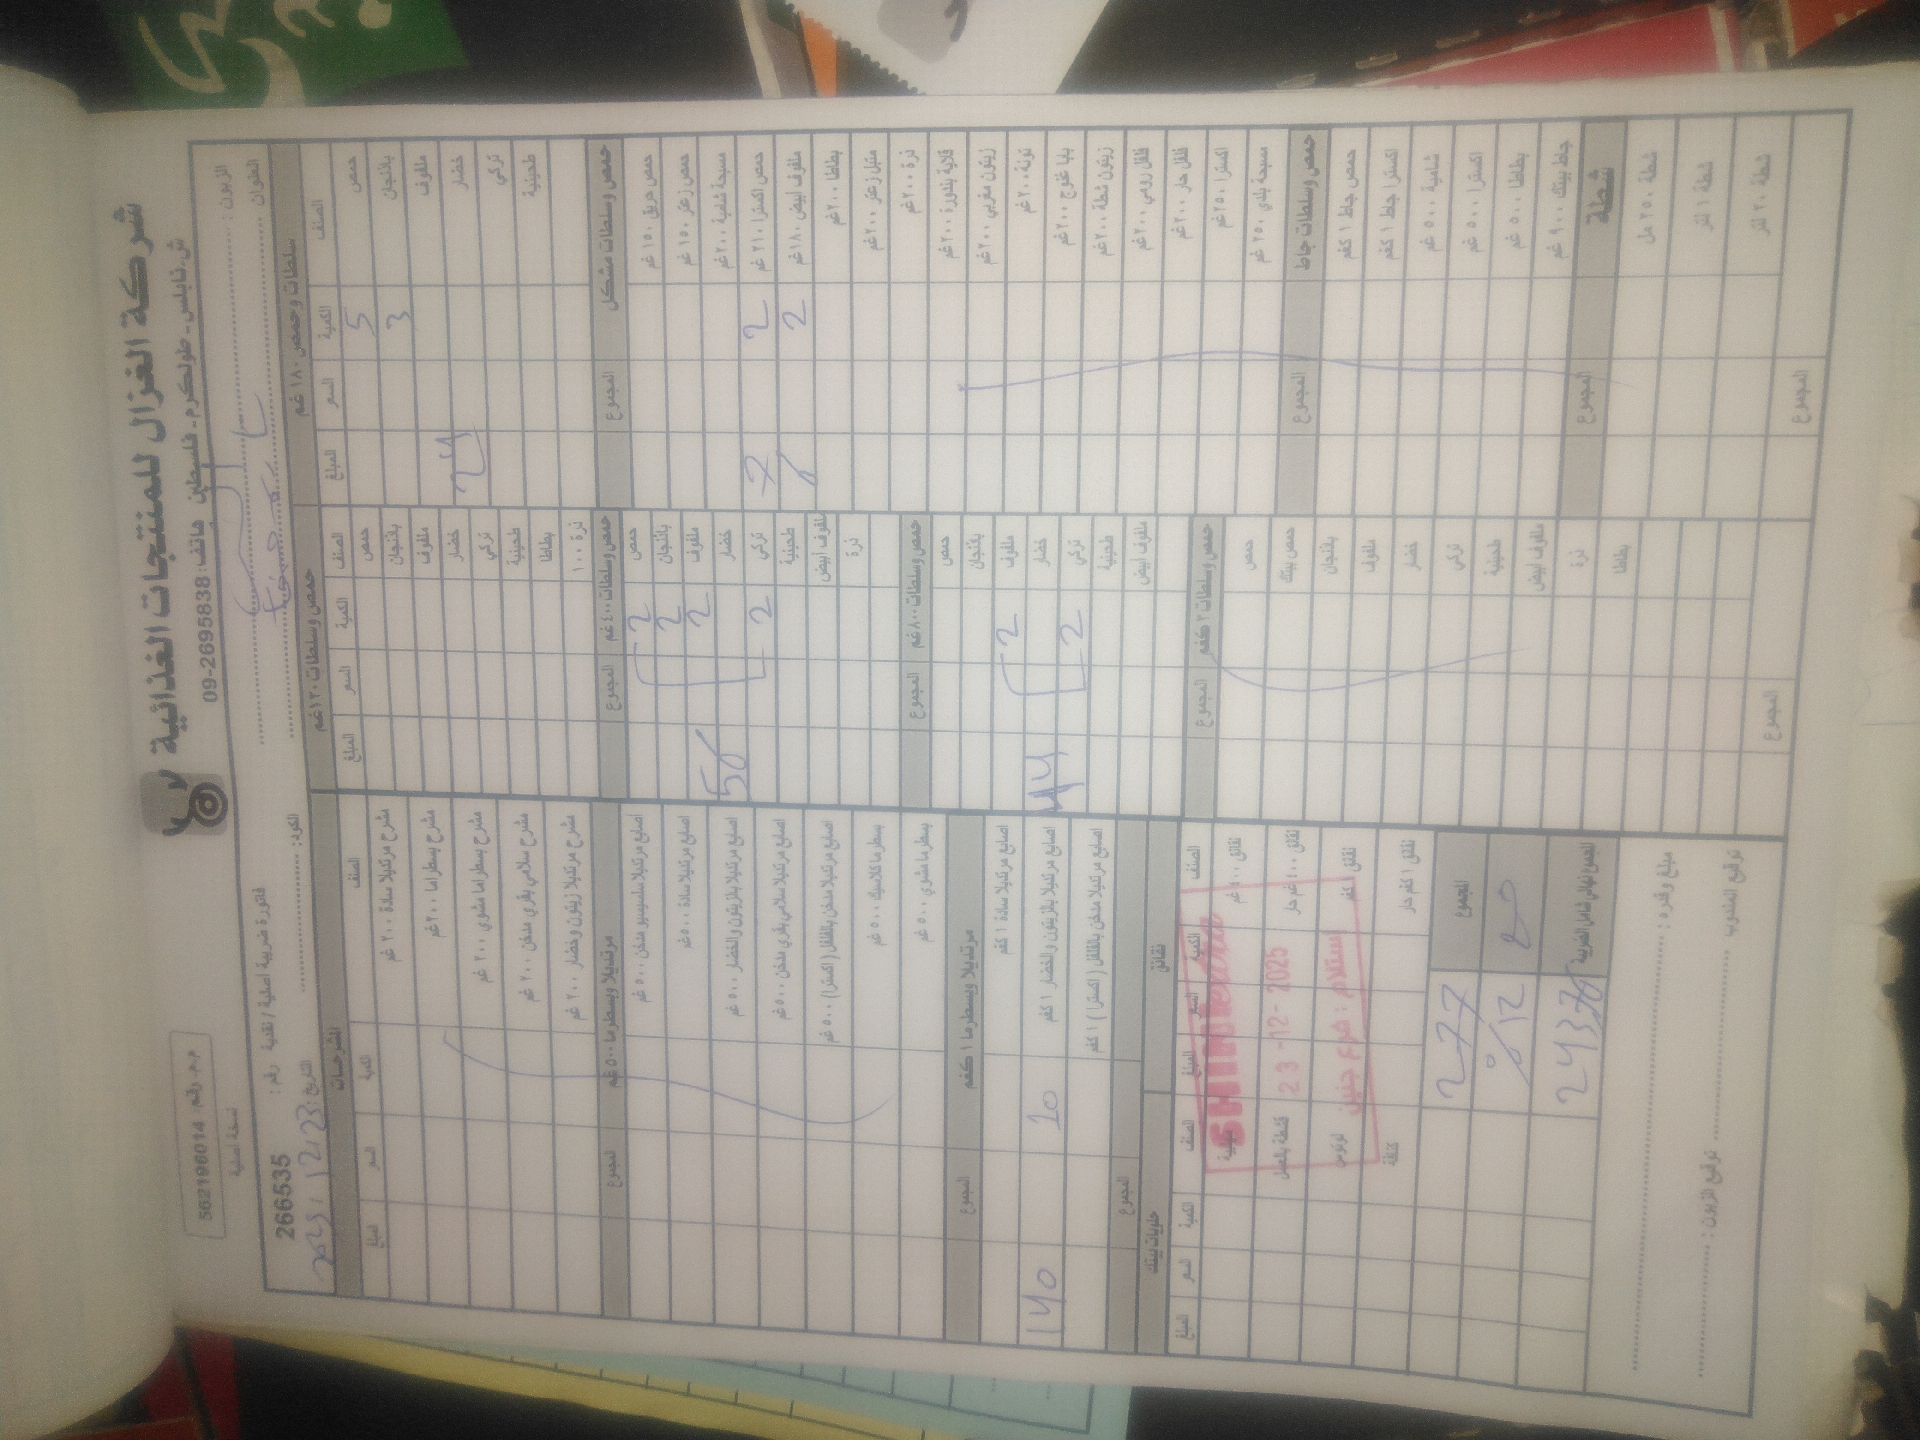 شركة الغزال للمنتجات الغذائية
ش. نابلس - طولكرم - فلسطين هاتف: 09-2695838
م.م. رقم 562196014
نسخة اصلية
الزبون :
العنوان
فاتورة ضريبية اصلية / نقدية رقم :
266535
الكود:
التاريخ: 2025 / 12 / 23
سلطات وحمص ١٨٠ غم
الصنف الكمية السعر المبلغ
حمص 5
باذنجان 3
ملفوف
خضار 24
تركي
طحينية
حمص وسلطات مشكل المجموع
حمص حريق ١٥٠ غم
حمص زعتر ١٥٠ غم
مسبحة شامية ٢٠٠ غم
حمص اكسترا ٢١٠ غم 2 7
ملفوف ابيض ١٨٠ غم 2 6
بطاطا ٢٠٠ غم
متبل زعتر ٢٠٠ غم
ذرة ٢٠٠ غم
قلاية بندورة ٢٠٠ غم
زيتون مغربي ٢٠٠ غم
تونة ٢٠٠ غم
بابا غنوج ٢٠٠ غم
زيتون شطة ٢٠٠ غم
فلفل رومي ٢٠٠ غم
فلفل حار ٢٠٠ غم
اكسترا ٢٥٠ غم
مسبحة بلدي ٢٥٠ غم
حمص وسلطات جاط المجموع
حمص جاط ١ كغم
اكسترا جاط ١ كغم
شامية ٥٠٠ غم
اكسترا ٥٠٠ غم
بطاطا ٥٠٠ غم
جاط بيتك ٩٠٠ غم
شطة المجموع
شطة ٢٥٠ مل
شطة ١ لتر
شطة ٢٠ لتر
المجموع
حمص وسلطات ١٢٠ غم
الصنف الكمية السعر المبلغ
حمص
باذنجان
ملفوف
خضار
تركي
طحينية
بطاطا
ذرة ١٠٠
حمص وسلطات ٤٠٠ غم المجموع
حمص 2
باذنجان 2
ملفوف 2
خضار 56
تركي 2
طحينية
ملفوف ابيض
ذرة
حمص وسلطات ٨٠٠ غم المجموع
حمص
باذنجان
ملفوف 2
خضار 44
تركي 2
طحينية
ملفوف ابيض
حمص وسلطات ٣ كغم المجموع
حمص
حمص بيتك
باذنجان
ملفوف
خضار
تركي
طحينية
ملفوف ابيض
ذرة
بطاطا
المجموع
المشرحات
الصنف الكمية السعر المبلغ
مشرح مرتديلا سادة ٢٠٠ غم
مشرح بسطراما ٢٠٠ غم
مشرح بسطراما مشوي ٢٠٠ غم
مشرح سلامي بقري مدخن ٢٠٠ غم
مشرح مرتديلا زيتون وخضار ٢٠٠ غم
مرتديلا وبسطرما ٥٠٠ غم المجموع
اصابع مرتديلا سادة ٥٠٠ غم
اصابع مرتديلا بالزيتون والخضار ٥٠٠ غم
اصابع مرتديلا سلامي بقري مدخن ٥٠٠ غم
اصابع مرتديلا مدخن بالفلفل (اكسترا) ٥٠٠ غم
بسطرما كلاسيك ٥٠٠ غم
بسطرما مشوي ٥٠٠ غم
مرتديلا وبسطرما ١ كغم المجموع
اصابع مرتديلا سادة ١ كغم
اصابع مرتديلا بالزيتون والخضار ١ كغم 10 140
اصابع مرتديلا مدخن بالفلفل (اكسترا) ١ كغم
المجموع
نقانق
حلويات بيتك
الصنف الكمية السعر المبلغ
الصنف الكمية السعر المبلغ
نقانق ٤٠٠ غم
نقانق ٤٠٠ غم حار
قشطة بالعسل
نقانق ١ كغم
لوتوس
نقانق ١ كغم حار
23 -12- 2025
استلام : فرع جنين
المجموع 277
12%
المجموع النهائي شامل الضريبة
مبلغ وقدره :
توقيع المندوب
توقيع الزبون :